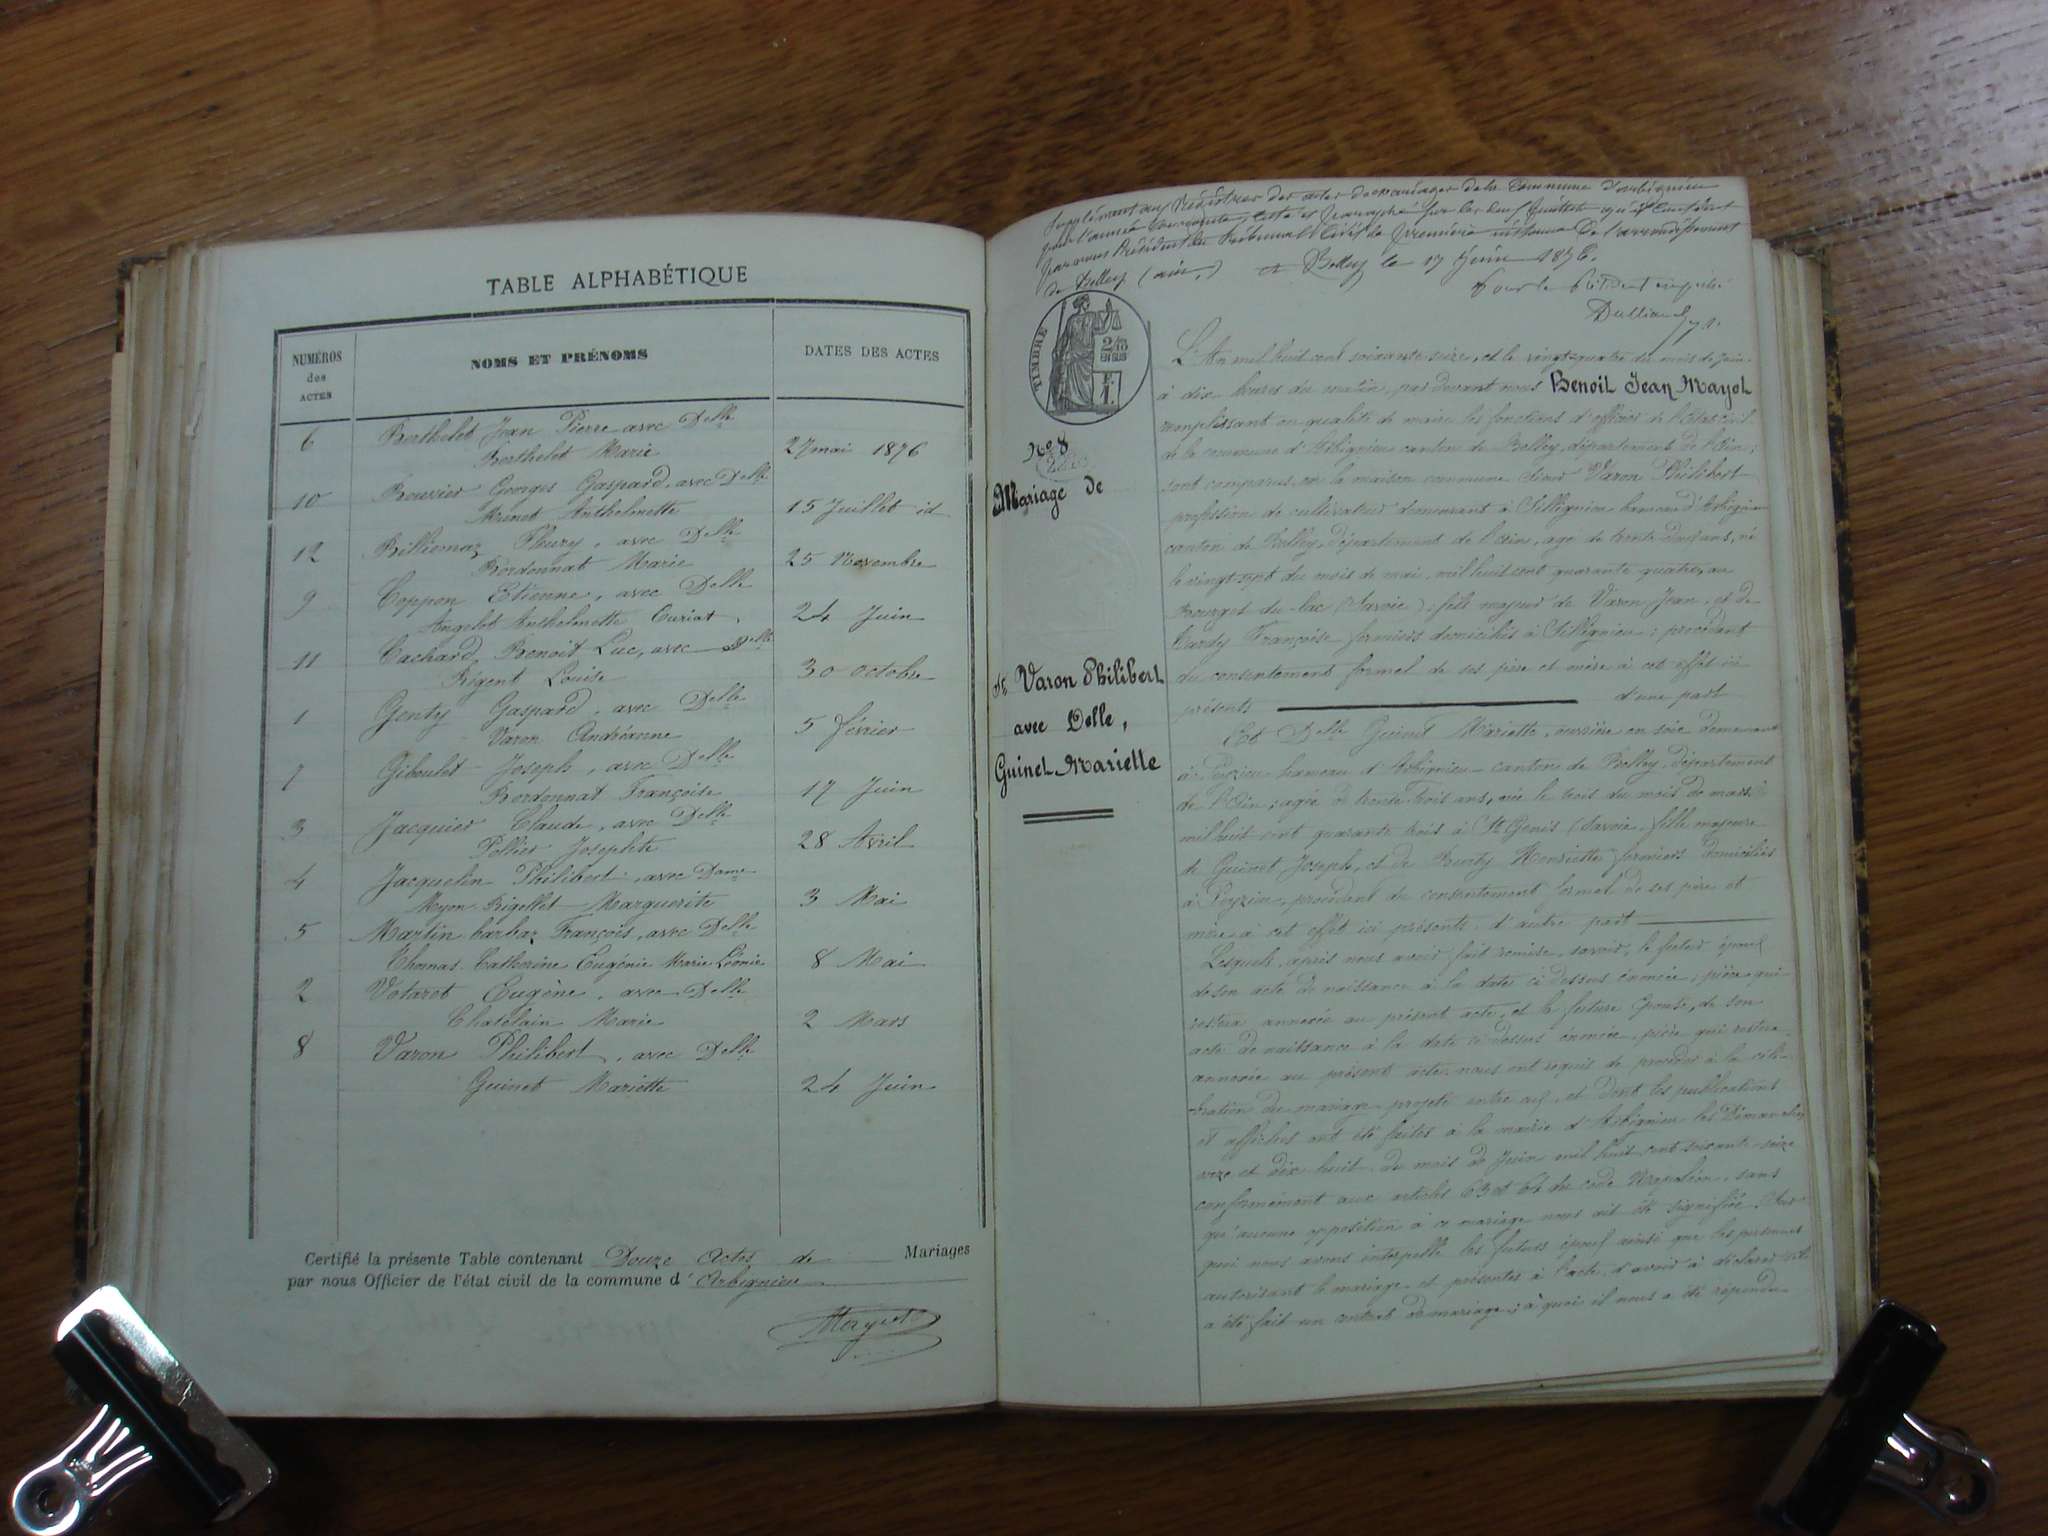 TABLE ALPHABÉTIQUE
NUMÉROS
des
ACTES
NOMS ET PRÉNOMS
DATES DES ACTES
6 Berthelet Jean Pierre avec Delle
Berthelet Marie 27 mai 1876
10 Bouvier Georges Gaspard, avec Delle
Brunet Anthelmette 15 Juillet id
12 Billiemaz Fleury, avec Delle
Bordonnat Marie 25 Novembre
9 Coppon Etienne, avec Delle
Angelot Anthelmette Curiat, 24 Juin
11 Cachard Benoit Luc, avec Delle
Rigent Louise 30 octobre
1 Genty Gaspard, avec Delle
Varon Andréanne 5 février
7 Giboulet Joseph, avec Delle
Bordonnat Françoise 17 Juin
3 Jacquier Claude, avec Delle
Pellier Josephte 28 Avril
4 Jacquelin Philibert, avec Dame
Myon Rigollet Marguerite 3 Mai
5 Martin barbaz François, avec Delle
Thomas Catherine Eugénie Marie Léonie 8 Mai
2 Votarot Eugène, avec Delle
Chatelain Marie 2 Mars
8 Varon Philibert, avec Delle
Guinet Mariette 24 Juin
Certifié la présente Table contenant Douze actes de Mariages
par nous Officier de l'état civil de la commune d'Arbignieu
Mayot
Supplément aux Régistres des actes de mariages de la Commune d'arbignieu
pour l'année courante, coté et paraphé sur les deux feuillets qu'il contient
par nous Président du Tribunal Civil de première instance de l'arrondissement
de Belley (ain,) Belley le 17 Juin 1876.
Pour le Président empêché
TIMBRE
No 8
Mariage de
Sr Varon Philibert
avec Delle,
Guinet Mariette
L'An mil huit cent soixante seize, et le vingt-quatre du mois de Juin
à dix heures du matin, par devant nous Benoit Jean Mayot
remplissant en qualité de maire les fonctions d'officier de l'état civil
de la commune d'Arbignieu canton de Belley, département de l'Ain;
sont comparus en la maison commune Sieur Varon Philibert
profession de cultivateur demeurant à Sillignieu hameau d'Arbignieu
canton de Belley, département de l'ain, agé de trente deux ans, né
le vingt-sept du mois de mai, mil huit cent quarante quatre, au
Bourget du-lac (Savoie), fils majeur de Varon Jean, et de
Françoise fermiers domiciliés à Sillignieu; procédant
du consentement formel de ses père et mère à cet effet ici
présents d'une part
Et Delle Guinet Mariette, ouvrière en soie demeurant
à Peyzieu hameau d'Arbignieu canton de Belley, département
de l'Ain; agée de trente trois ans, née le trois du mois de mars
mil huit cent quarante trois à St Genis (Savoie, fille majeure
de Guinet Joseph, et de Henriette fermiers domiciliés
à Peyzieu, procédant du consentement formel de ses père et
mère à cet effet ici présents d'autre part
Lesquels, après nous avoir fait remise, savoir, le futur époux
de son acte de naissance à la date ci dessus énoncée, pièce qui
restera annexée au présent acte, et la future épouse, de son
acte de naissance à la date ci dessus énoncée, pièce qui restera
annexée au présent acte nous ont requis de procéder à la célé-
bration du mariage projeté entre eux, et dont les publications
et affiches ont été faites à la mairie d'Arbignieu les Dimanches
onze et dix huit du mois de Juin mil huit cent soixante-seize
conformément aux articles 63 et 64 du code Napoléon, sans
qu'aucune opposition à ce mariage nous ait été signifiée. Sur
quoi nous avons interpellé les futurs époux ainsi que les personnes
autorisant le mariage et présentes à l'acte, d'avoir à déclarer s'il
a été fait un contrat de mariage; à quoi il nous a été répondu